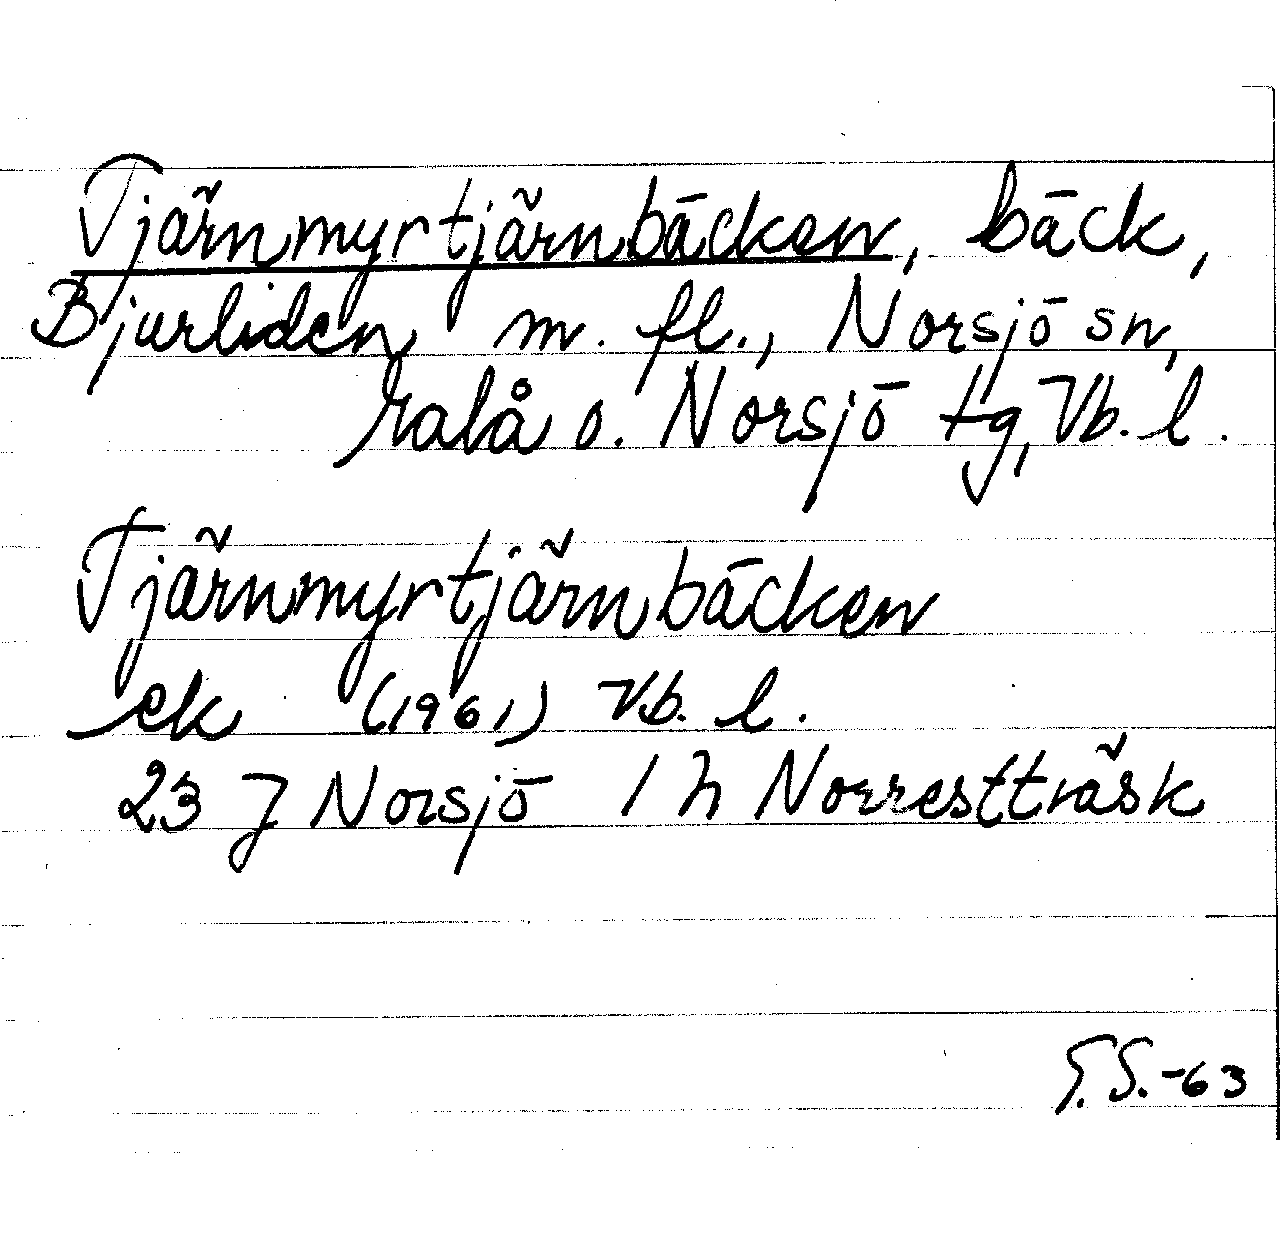 Tjärnmyrtjärnbäcken, bäck,
Bjurliden m. fl., Norsjö sn,
Malå o. Norsjö tg, Vb. l.
Tjärnmyrtjärnbäcken
ek (1961) Vb. l.
23 J Norsjö 1 h Norrestträsk
G.S.-63